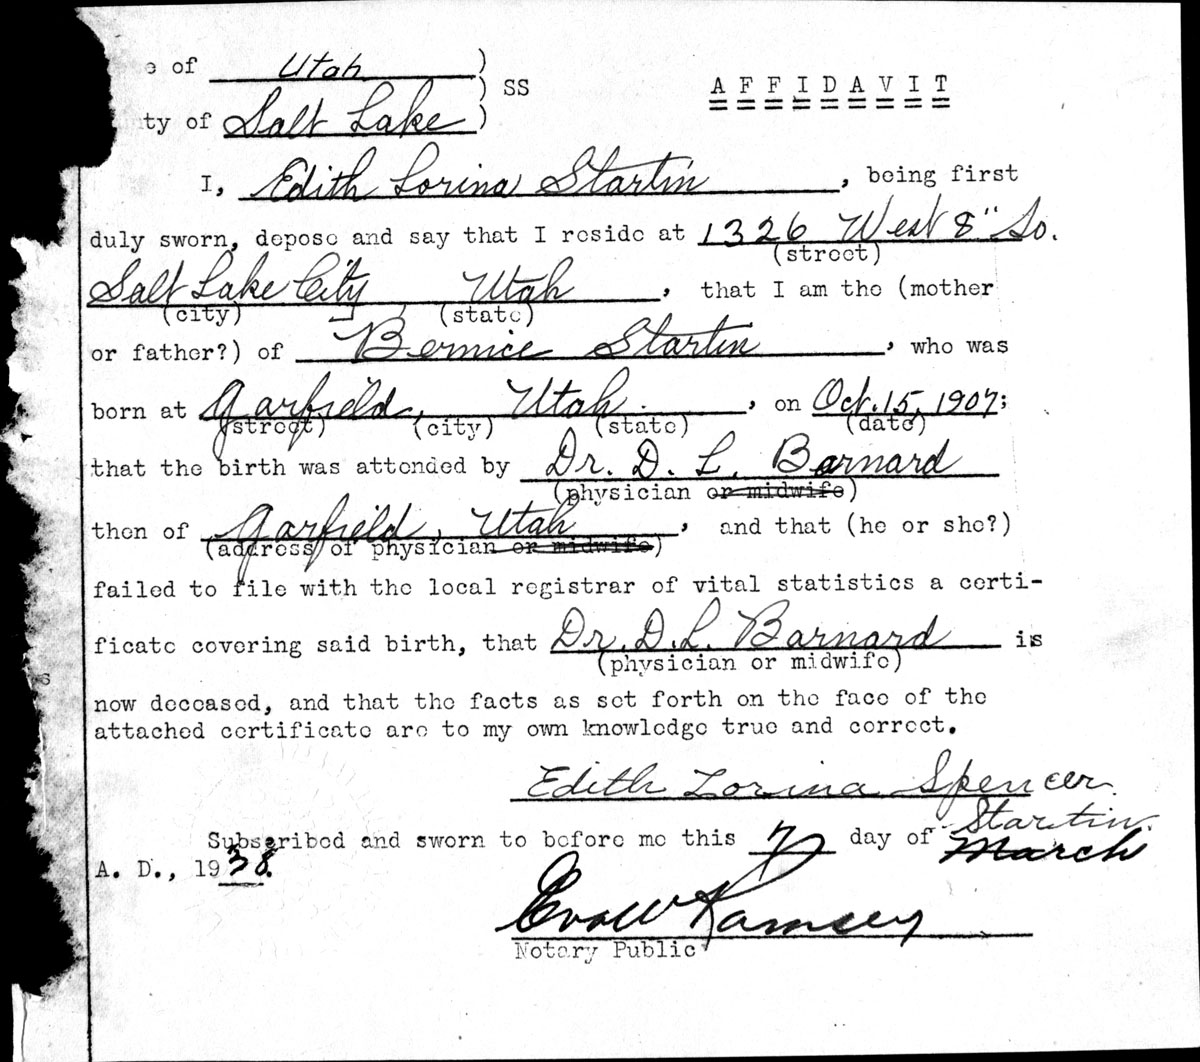 e of Utah )
) SS AFFIDAVIT
ty of Salt Lake )
I, Edith Lorina Startin, being first
duly sworn, depose and say that I reside at 1326 West 8" So.
(street)
Salt Lake City, Utah, that I am the (mother
(city) (state)
or father?) of Bernice Startin, who was
born at Garfield, Utah, on Oct. 15, 1907;
(street) (city) (state) (date)
that the birth was attended by Dr. D. L. Barnard
(physician or midwife)
then of Garfield, Utah, and that (he or she?)
(address of physician or midwife)
failed to file with the local registrar of vital statistics a certi-
ficate covering said birth, that Dr. D. L. Barnard is
(physician or midwife)
s
now deceased, and that the facts as set forth on the face of the
attached certificate are to my own knowledge true and correct.
Edith Lorina Spencer
Startin.
Subscribed and sworn to before me this 7 day of March
A. D., 1938.
Ramsey
Notary Public